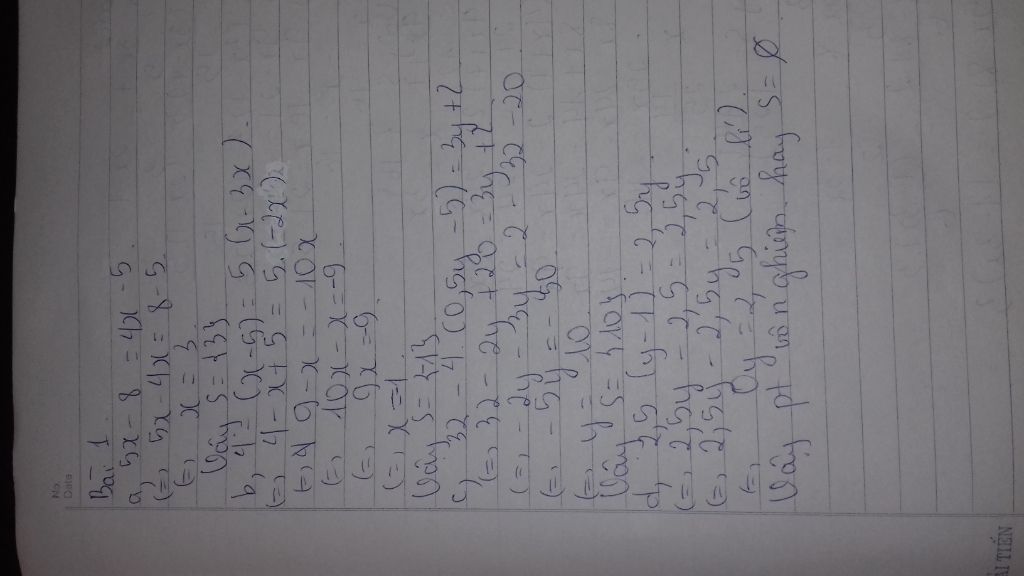 No.
Date
Bài 1
a, 5x - 8 = 4x - 5
(=, 5x - 4x = 8 - 5.
(=, x = 3
Vậy S = {3}
b, 4 - (x - 5) = 5 (x - 3x).
(=, 4 - x + 5 = 5. (-2x)
(=, 9 - x = - 10x
(=, 10x - x = -9
(=, 9x = -9
(=, x = -1
Vậy S = {-1}
c, 32 - 4 (0,5y - 5) = 3y + 2
(=, 32 - 2y + 20 = 3y + 2
(=, - 2y - 3y = 2 - 32 - 20
(=, - 5y = - 50
(=, y = 10
Vậy S = {10}
d, 2,5 (y - 1) = 2,5y.
(=, 2,5y - 2,5 = 2,5y.
(=, 2,5y - 2,5y = 2,5.
(=, 0y = 2,5 (vô lí).
Vậy pt vô nghiệm. hay S = Ø
ẢI TIẾN